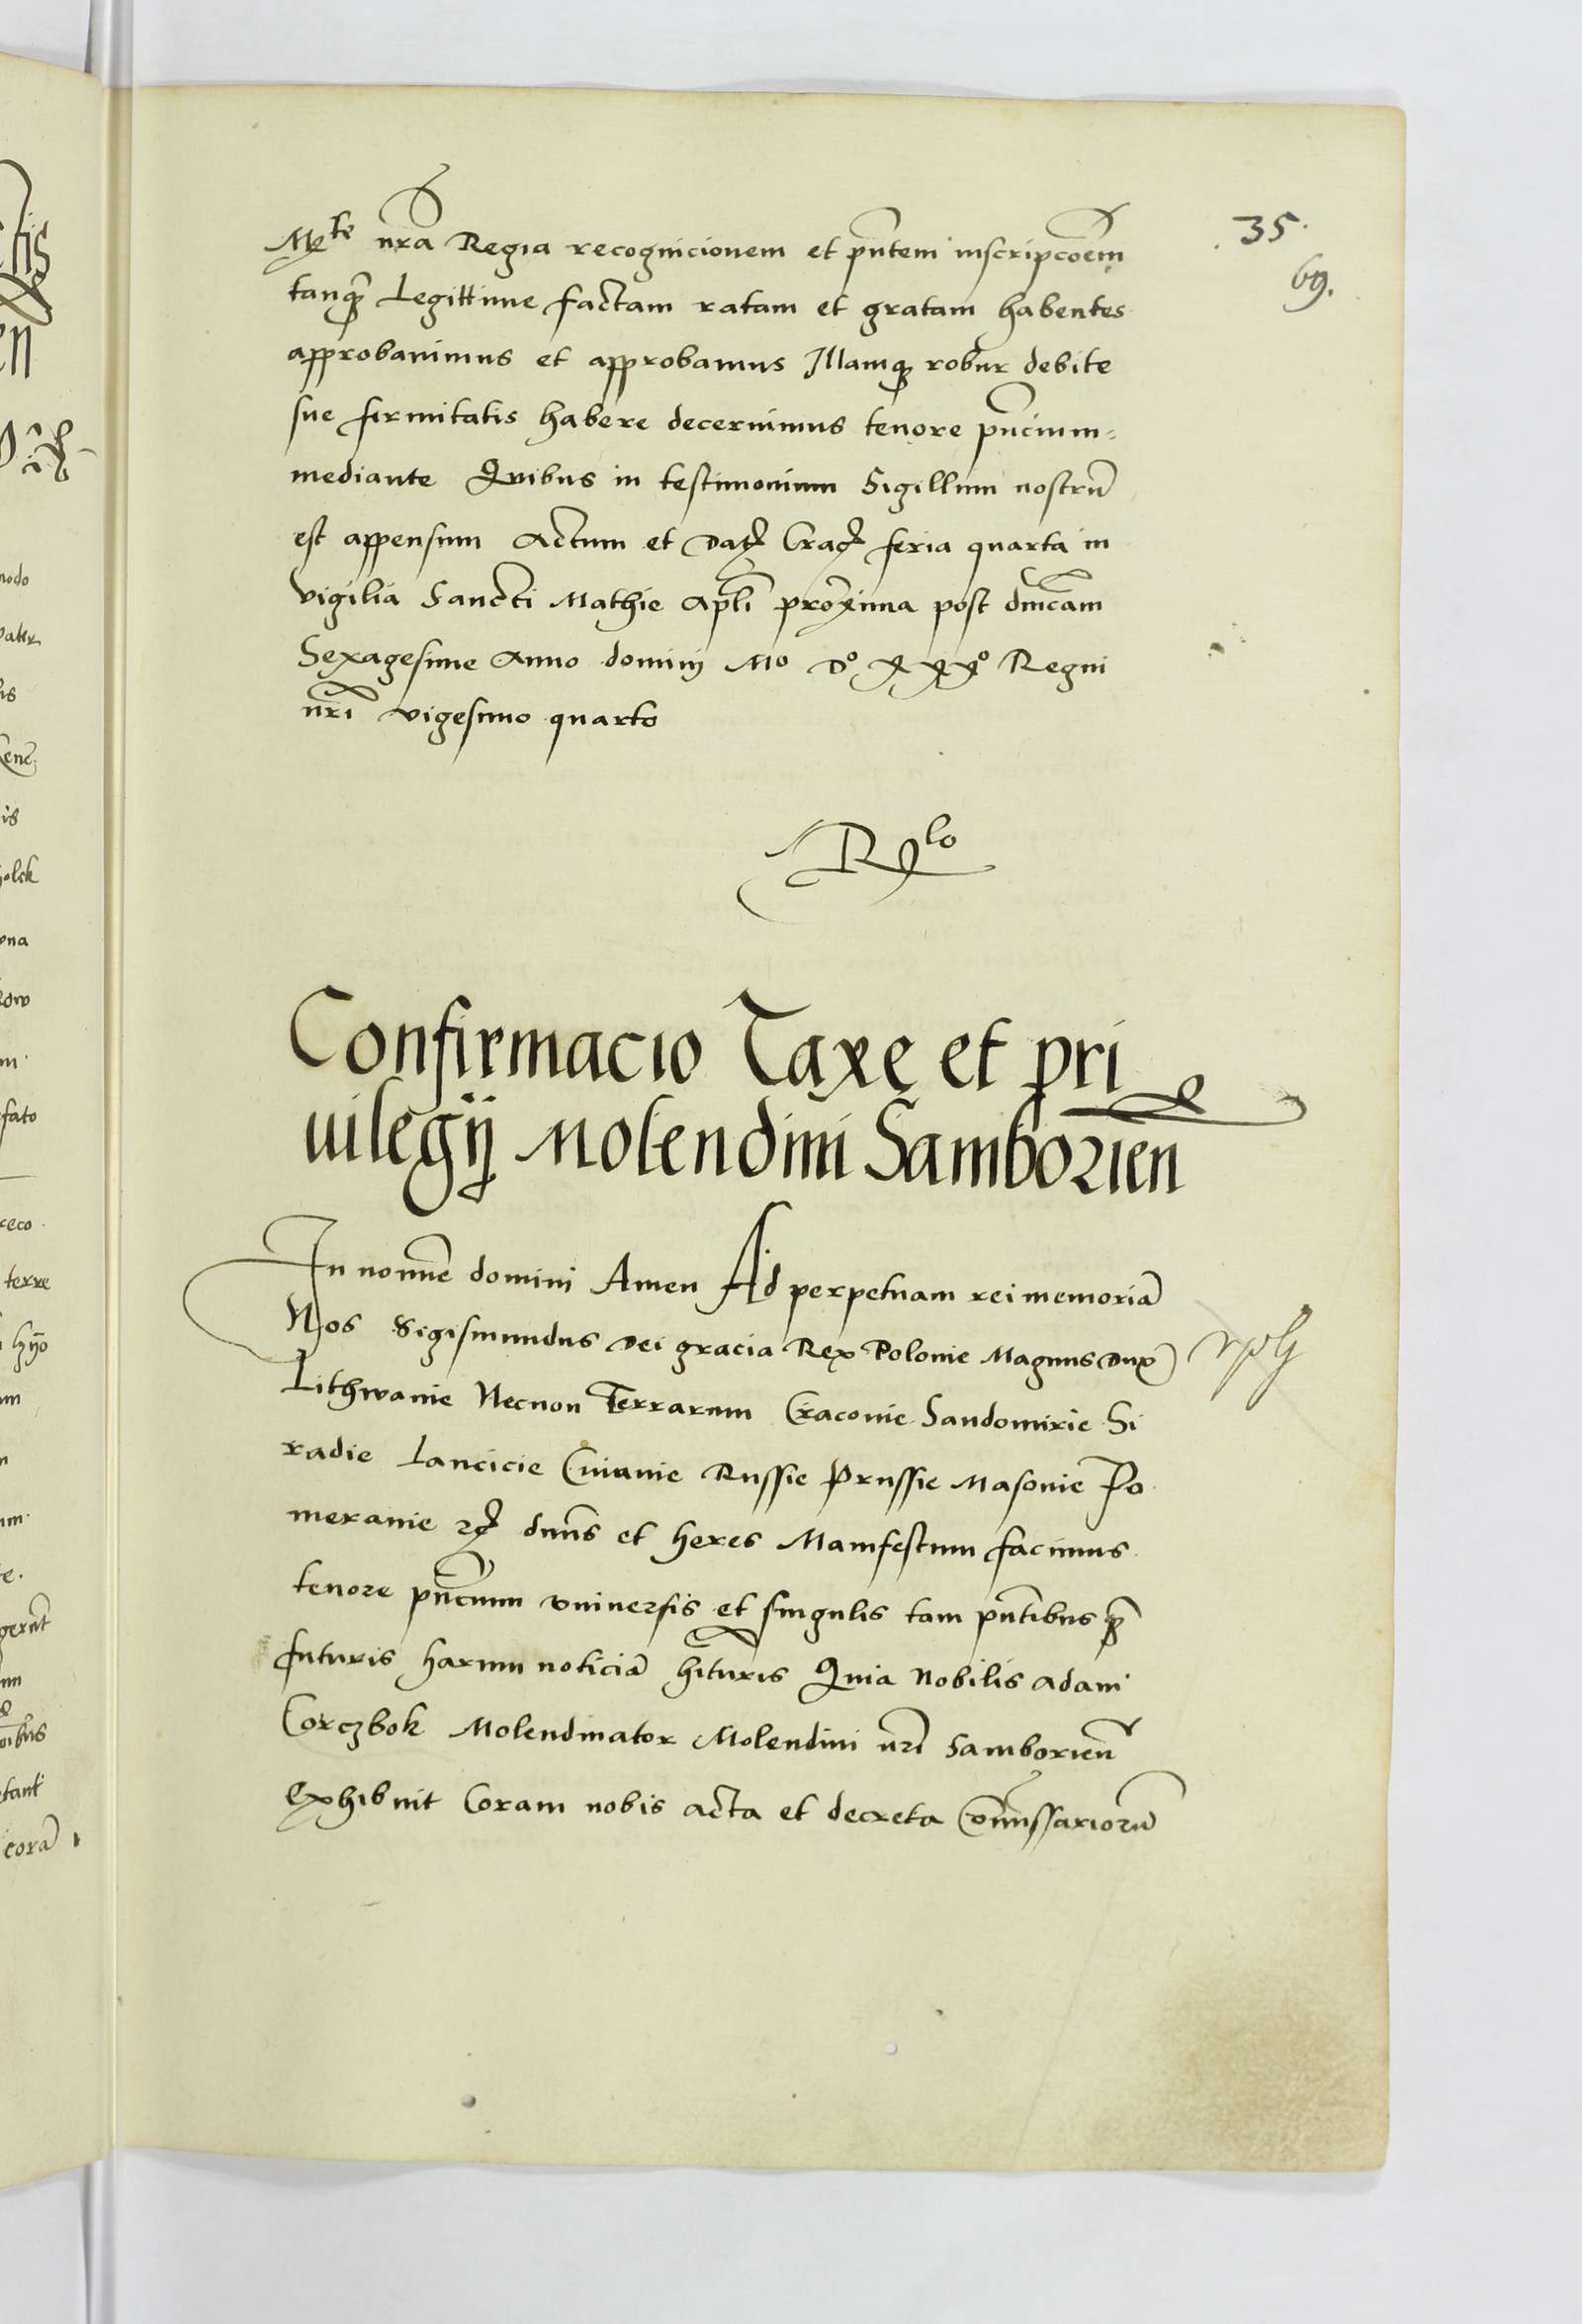 35.
69.
Mte nra Regia recognicionem et pntem inscripcoem
tanq̃ Legittime factam ratam et gratam habentes
approbavimus et approbamus Illamq robur debite
sue firmitatis habere decernimus tenore pncium
mediante Quibus in testimonium Sigillum nostrũ
est appensum Actum et Dat Crac feria quarta in
vigilia Sancti Mathie apli proxima post dnicam
Sexagesime Anno domini Mo Do XXXo Regni
nri vigesimo quarto
Rlo
Confirmacio Taxe et pri
uilegij Molendini Samborien
In nomine domini Amen Ad perpetuam rei memoriã
Nos Sigismundus Dei gracia Rex Polonie Magnus Dux
Lithwanie Necnon Terrarum Cracouie Sandomirie Si
radie Lancicie Cuiauie Russie Prussie Masouie Po
meranie zc dnns et heres Manifestum facimus
tenore pncium vniuersis et singulis tam pntibus q̃
futuris harum noticiã hituris Quia Nobilis Adam
Corczbok Molendinator Molendini nri Samborien
Exhibuit Coram nobis acta et decreta Comissariorũ